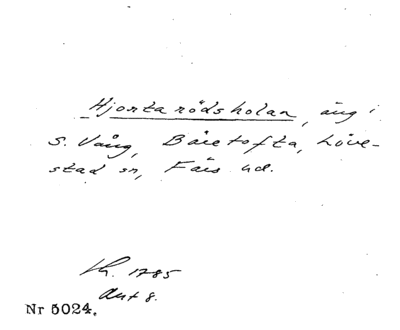 Hjortarödsholan, äng i
S. Vång, Båretofta, Löve-
stad sn, Färs hd.
Lh. 1785
Akt 8.
Nr 5024.